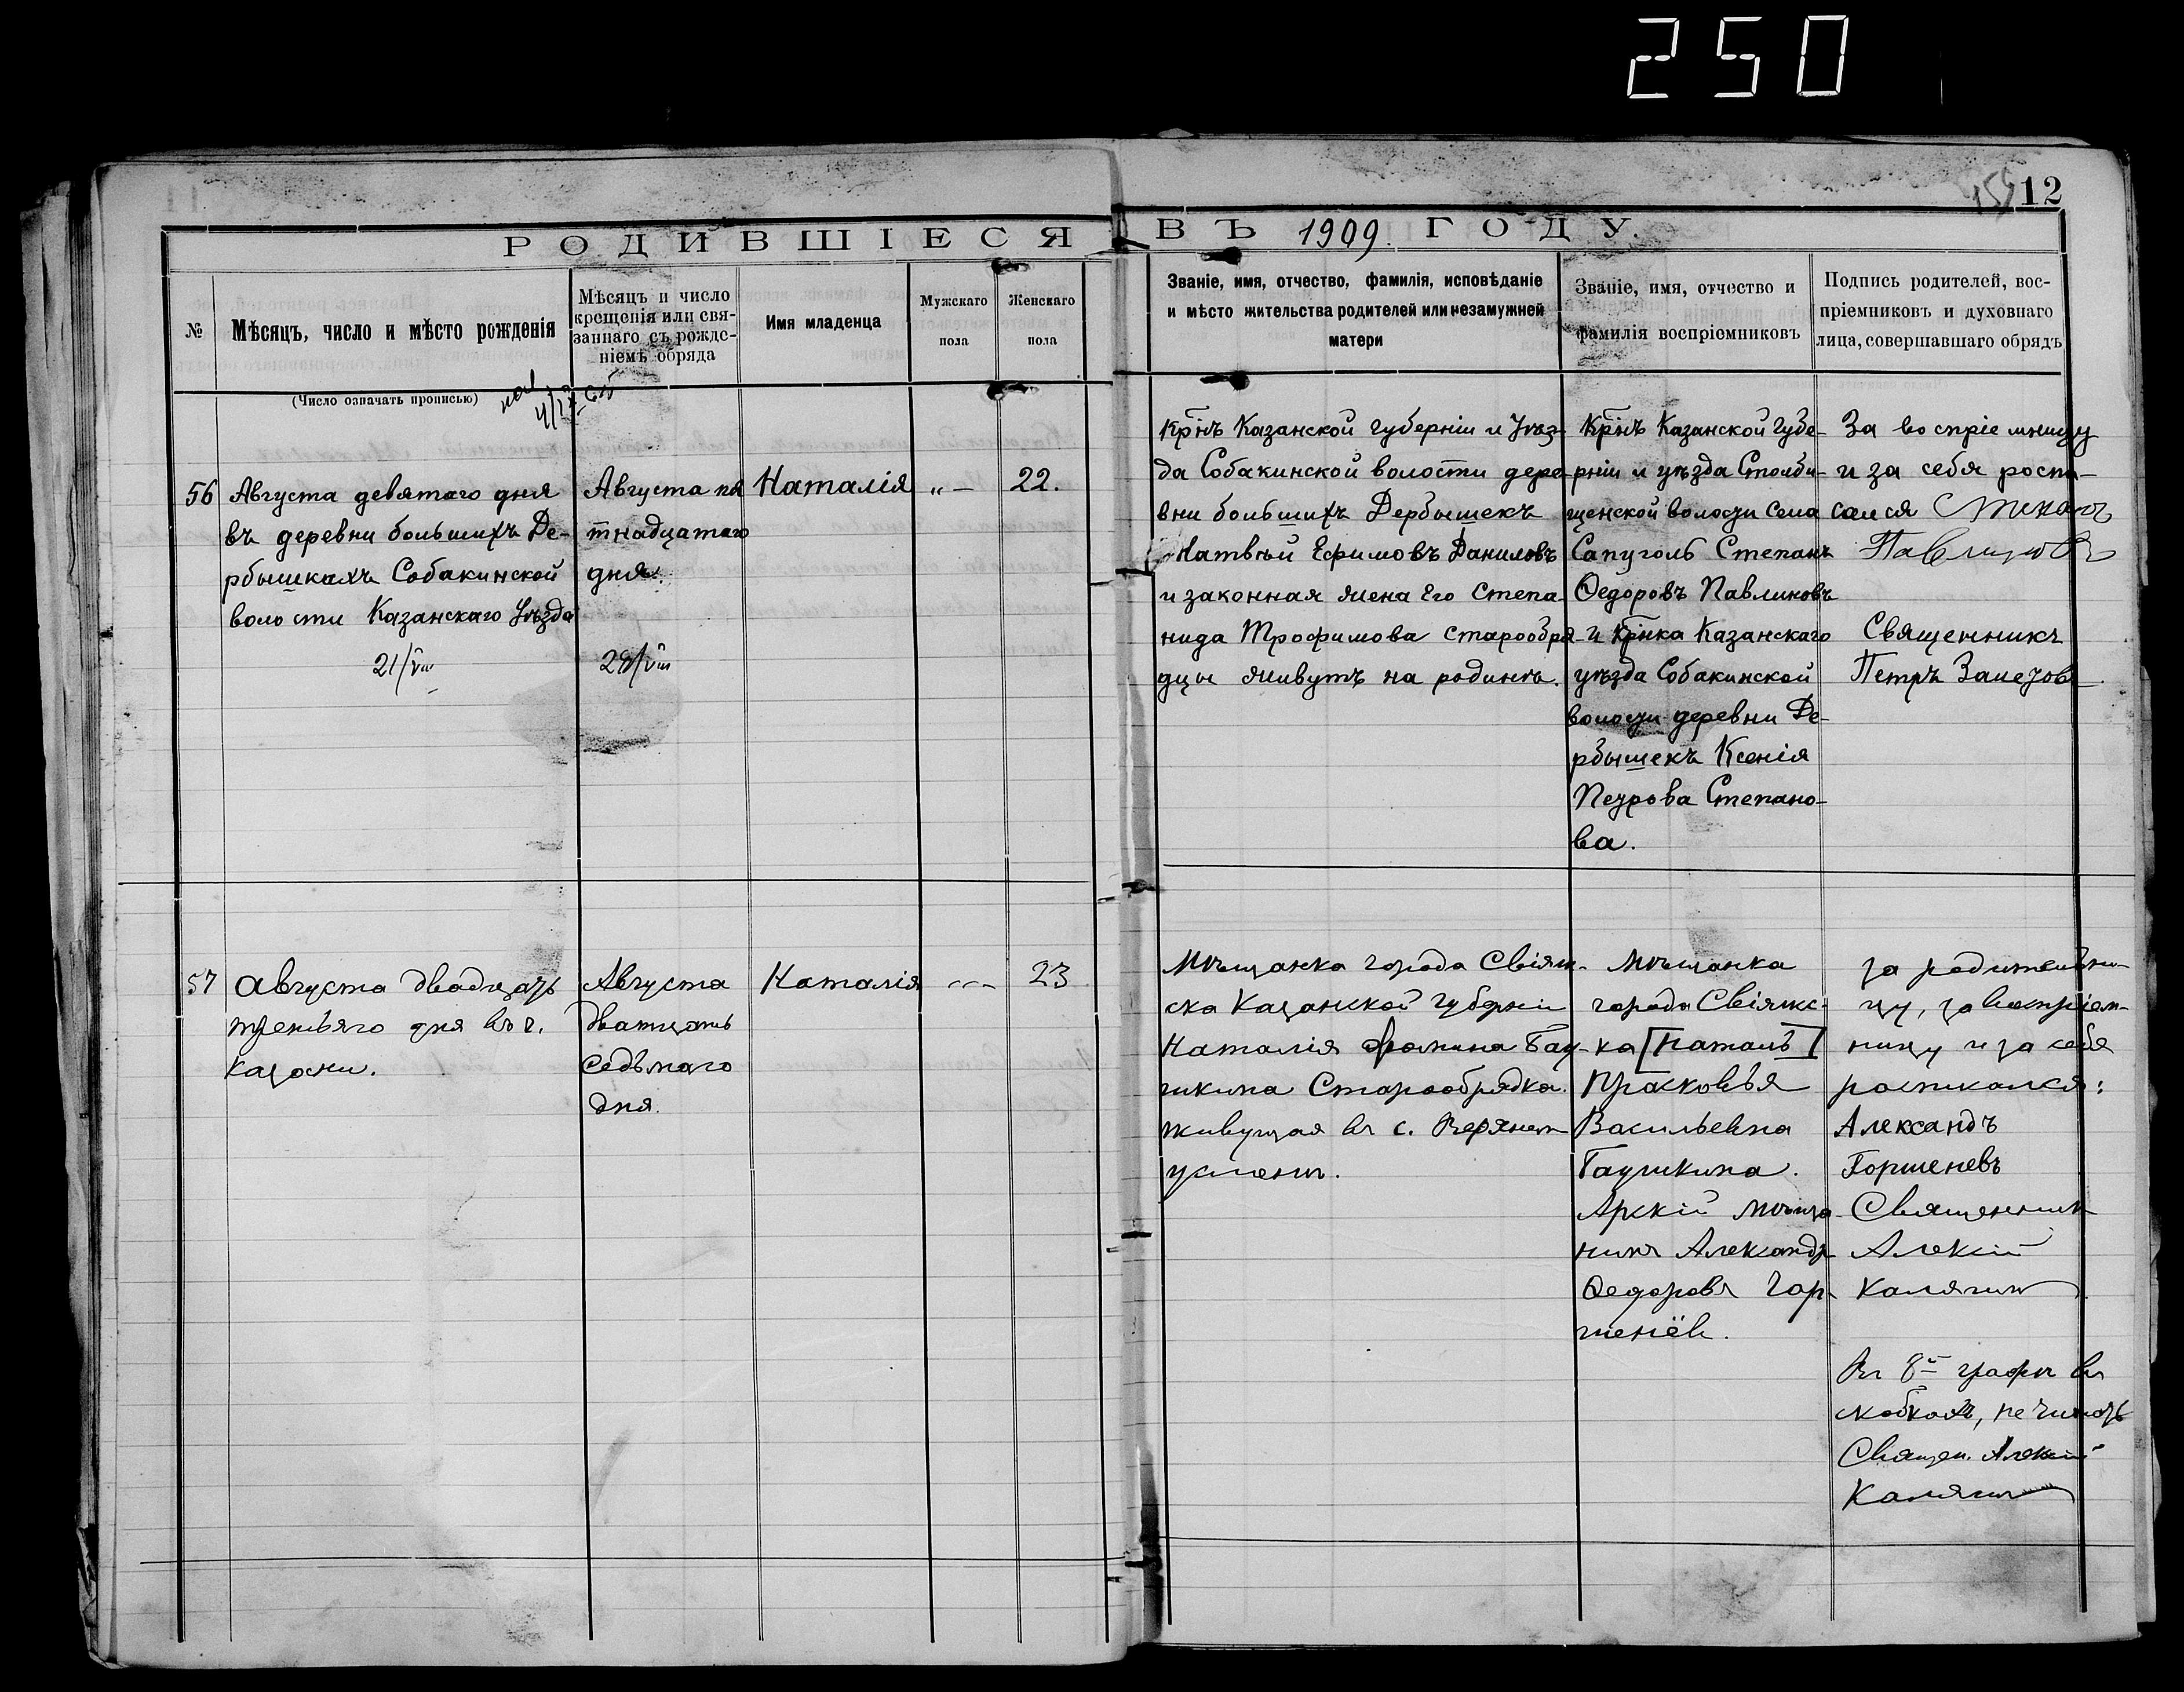 250
12
РОДИВШІЕСЯ ВЪ 1909. ГОДУ.
№
Мѣсяцъ, число и мѣсто рожденія
Мѣсяцъ и число
крещенія или свя-
заннаго съ рожде-
ніемъ обряда
Имя младенца
Мужскаго
пола
Женскаго
пола
Званіе, имя, отчество, фамилія, исповѣданіе
и мѣсто жительства родителей или незамужней
матери
Званіе, имя, отчество и
фамилія воспріемниковъ
Подпись родителей, вос-
пріемниковъ и духовнаго
лица, совершавшаго обрядъ
(Число означать прописью)
56
Августа девятаго дня
въ деревни большихъ Де-
рбышкахъ Собакинской
волости Казанскаго Уѣзда
21/VIII
Августа пя
тнадцатаго
дня.
Наталія
„ —
22.
Крнъ Казанской губерніи и Уѣз-
да Собакинской волости дере-
вни большихъ Дербышекъ
Матвѣй Ефимовъ Даниловъ
и законная жена Его Степа-
нида Трофимова старообря-
дцы живутъ на родинѣ.
Крнъ Казанской Губе-
рніи и уѣзда Столби-
щенской волости Села
Сапуголь Степанъ
Ѳедоровъ Павлиновъ
и Крнка Казанскаго
уѣзда Собакинской
волости деревни Де-
рбышекъ Ксенія
Петрова Степано-
ва.
За воспріемницу
и за себя роспи-
сался Степанъ
Павлиновъ
Священникъ
Петръ Залетовъ
57
Августа двадцать
третьяго дня въ г.
Казани.
Августа
дватцать
седьмаго
дня.
Наталія
23
Мѣщанка города Свіяж-
ска Казанской губерніи
Наталія Фомина Гау-
шкина Старообрядка.
живущая въ с. Верхнем
услонѣ.
Мѣщанка
города Свіяжс-
ка [Наталь]
Прасковья
Васильевна
Гаушкина.
Арскій мѣща-
нинъ Александръ
Ѳедоровъ Гор-
шенёв.
за родительни-
цу, за воспріем-
ницу и за себя
росписался:
Александъ
Горшеневъ
Священник
Алексій
Калягин
Въ 8й графѣ въ
скобкахъ, не читать
Священ. Алексій
Калягин